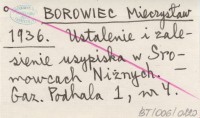 BOROWIEC Mieczysław
1936. Ustalenie i zale-
sienie usypiska w Sro-
mowcach Niżnych.
Gaz. Podhala 1, nr 4.